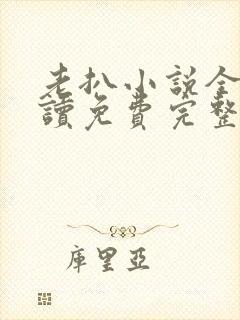 老扒小说全
讀免費完整
庫里亞